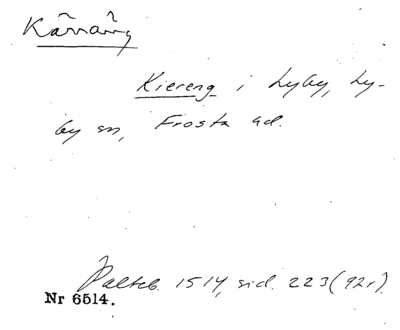 Kärräng
Kiereng i Lyby, Ly-
by sn, Frosta hd.
Palteb. 1514, sid. 223 (92r).
Nr 6514.